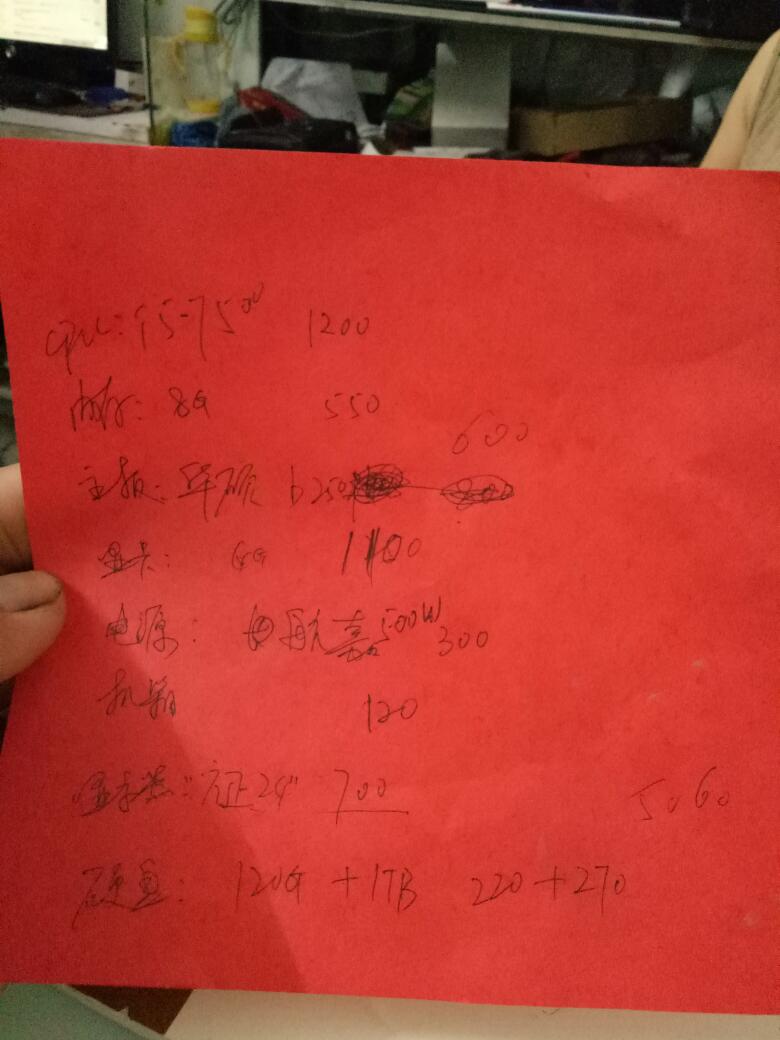 cpu: i5-7500 1200
内存: 8G 550
600
主板: 华硕 b250
显卡: 6G 1100
电源: 航嘉500W 300
机箱 120
显示器: 方正24" 700
5060
硬盘: 120G + 1TB 220+270